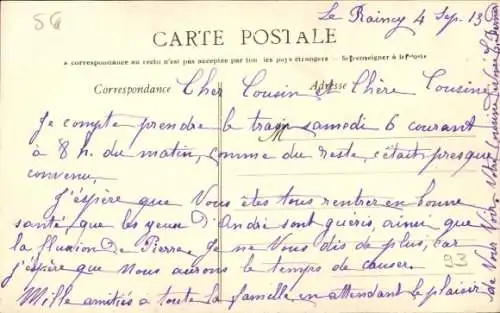 56
Le Raincy 4 Sep. 13
CARTE POSTALE
La correspondance au recto n'est pas acceptée par tous les pays étrangers - Se renseigner à la Poste
Correspondance
Adresse
Cher Cousin et Chère Cousine
Je compte prendre le train samedi 6 courant
à 8 h. du matin, comme du reste, c'était presque
convenu.
J'éspère que Vous êtes tous rentrer en bonne
santé, que les yeux d'André sont guéris, ainsi que
la fluxion de Pierre. Je ne Vous dis de plus, car
j'éspère que nous aurons le temps de causer.
Mille amitiés a toute la famille, en attendant le plaisir
de Vous Voir. Votre Cousin
93